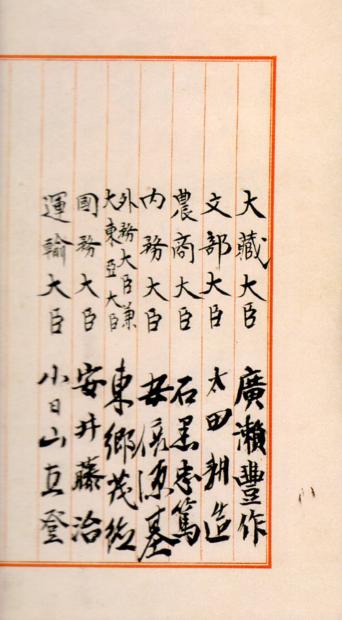 大藏大臣 廣瀨豐作
文部大臣 太田耕造
農商大臣 石黑忠篤
内務大臣 安倍源基
外務大臣兼
大東亞大臣 東鄕茂德
國務大臣 安井藤治
運輸大臣 小日山直登